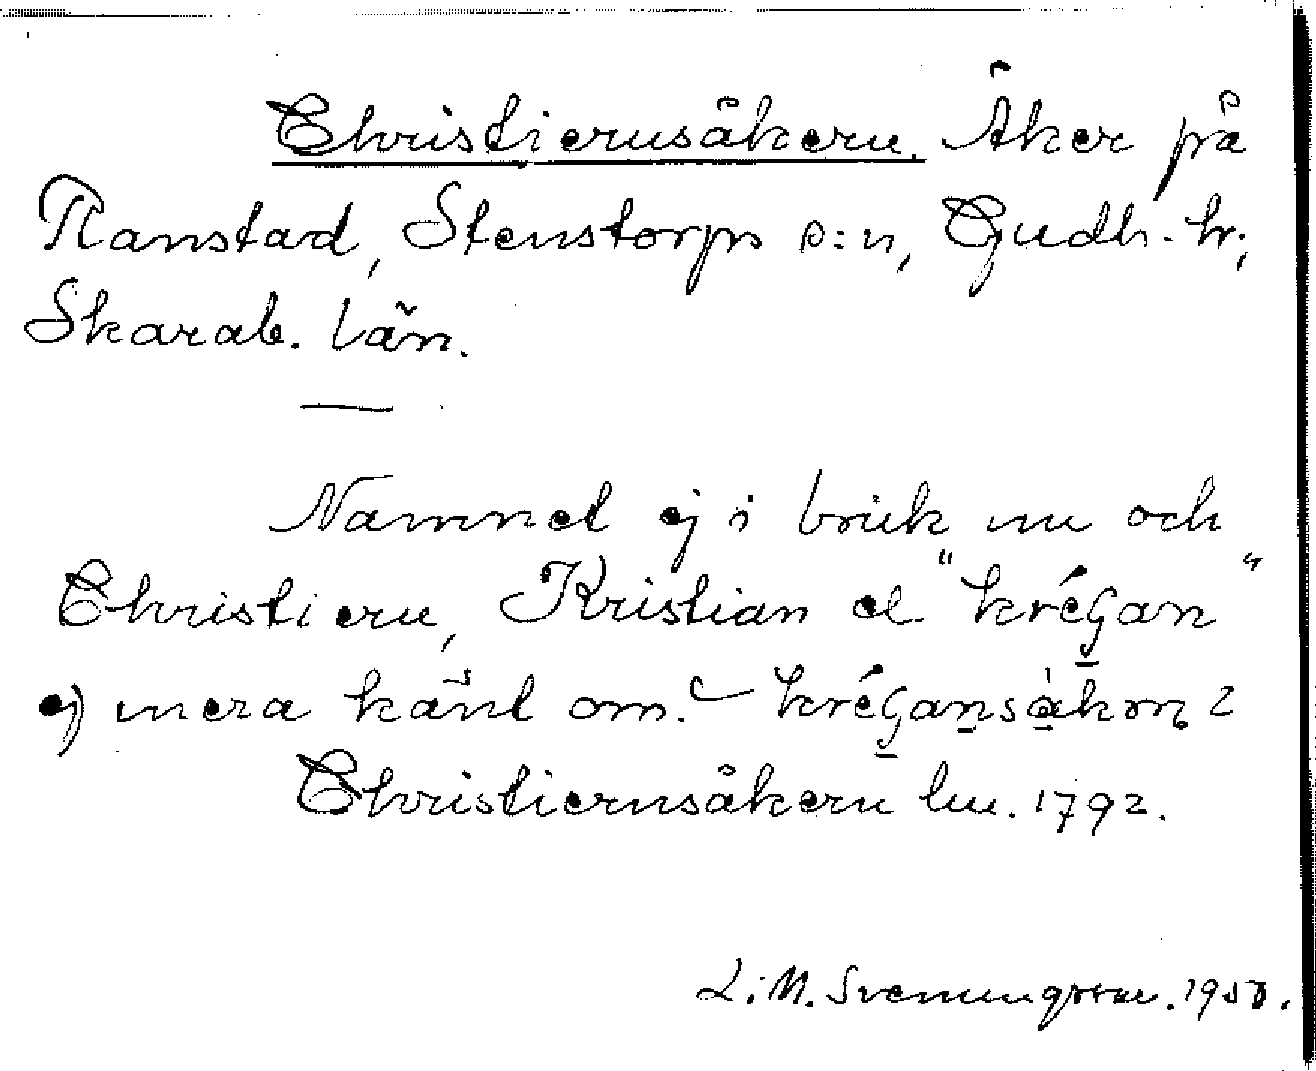 Christiernsåkern. Åker på
Ranstad, Stenstorps s:n, Gudh. hr;
Skarab. län.
—
Namnet ej i bruk nu och
Christiern, Kristian el. "krégan"
ej mera känt om.
Christiernsåkern lm. 1792.
L. M. Svenungsson.